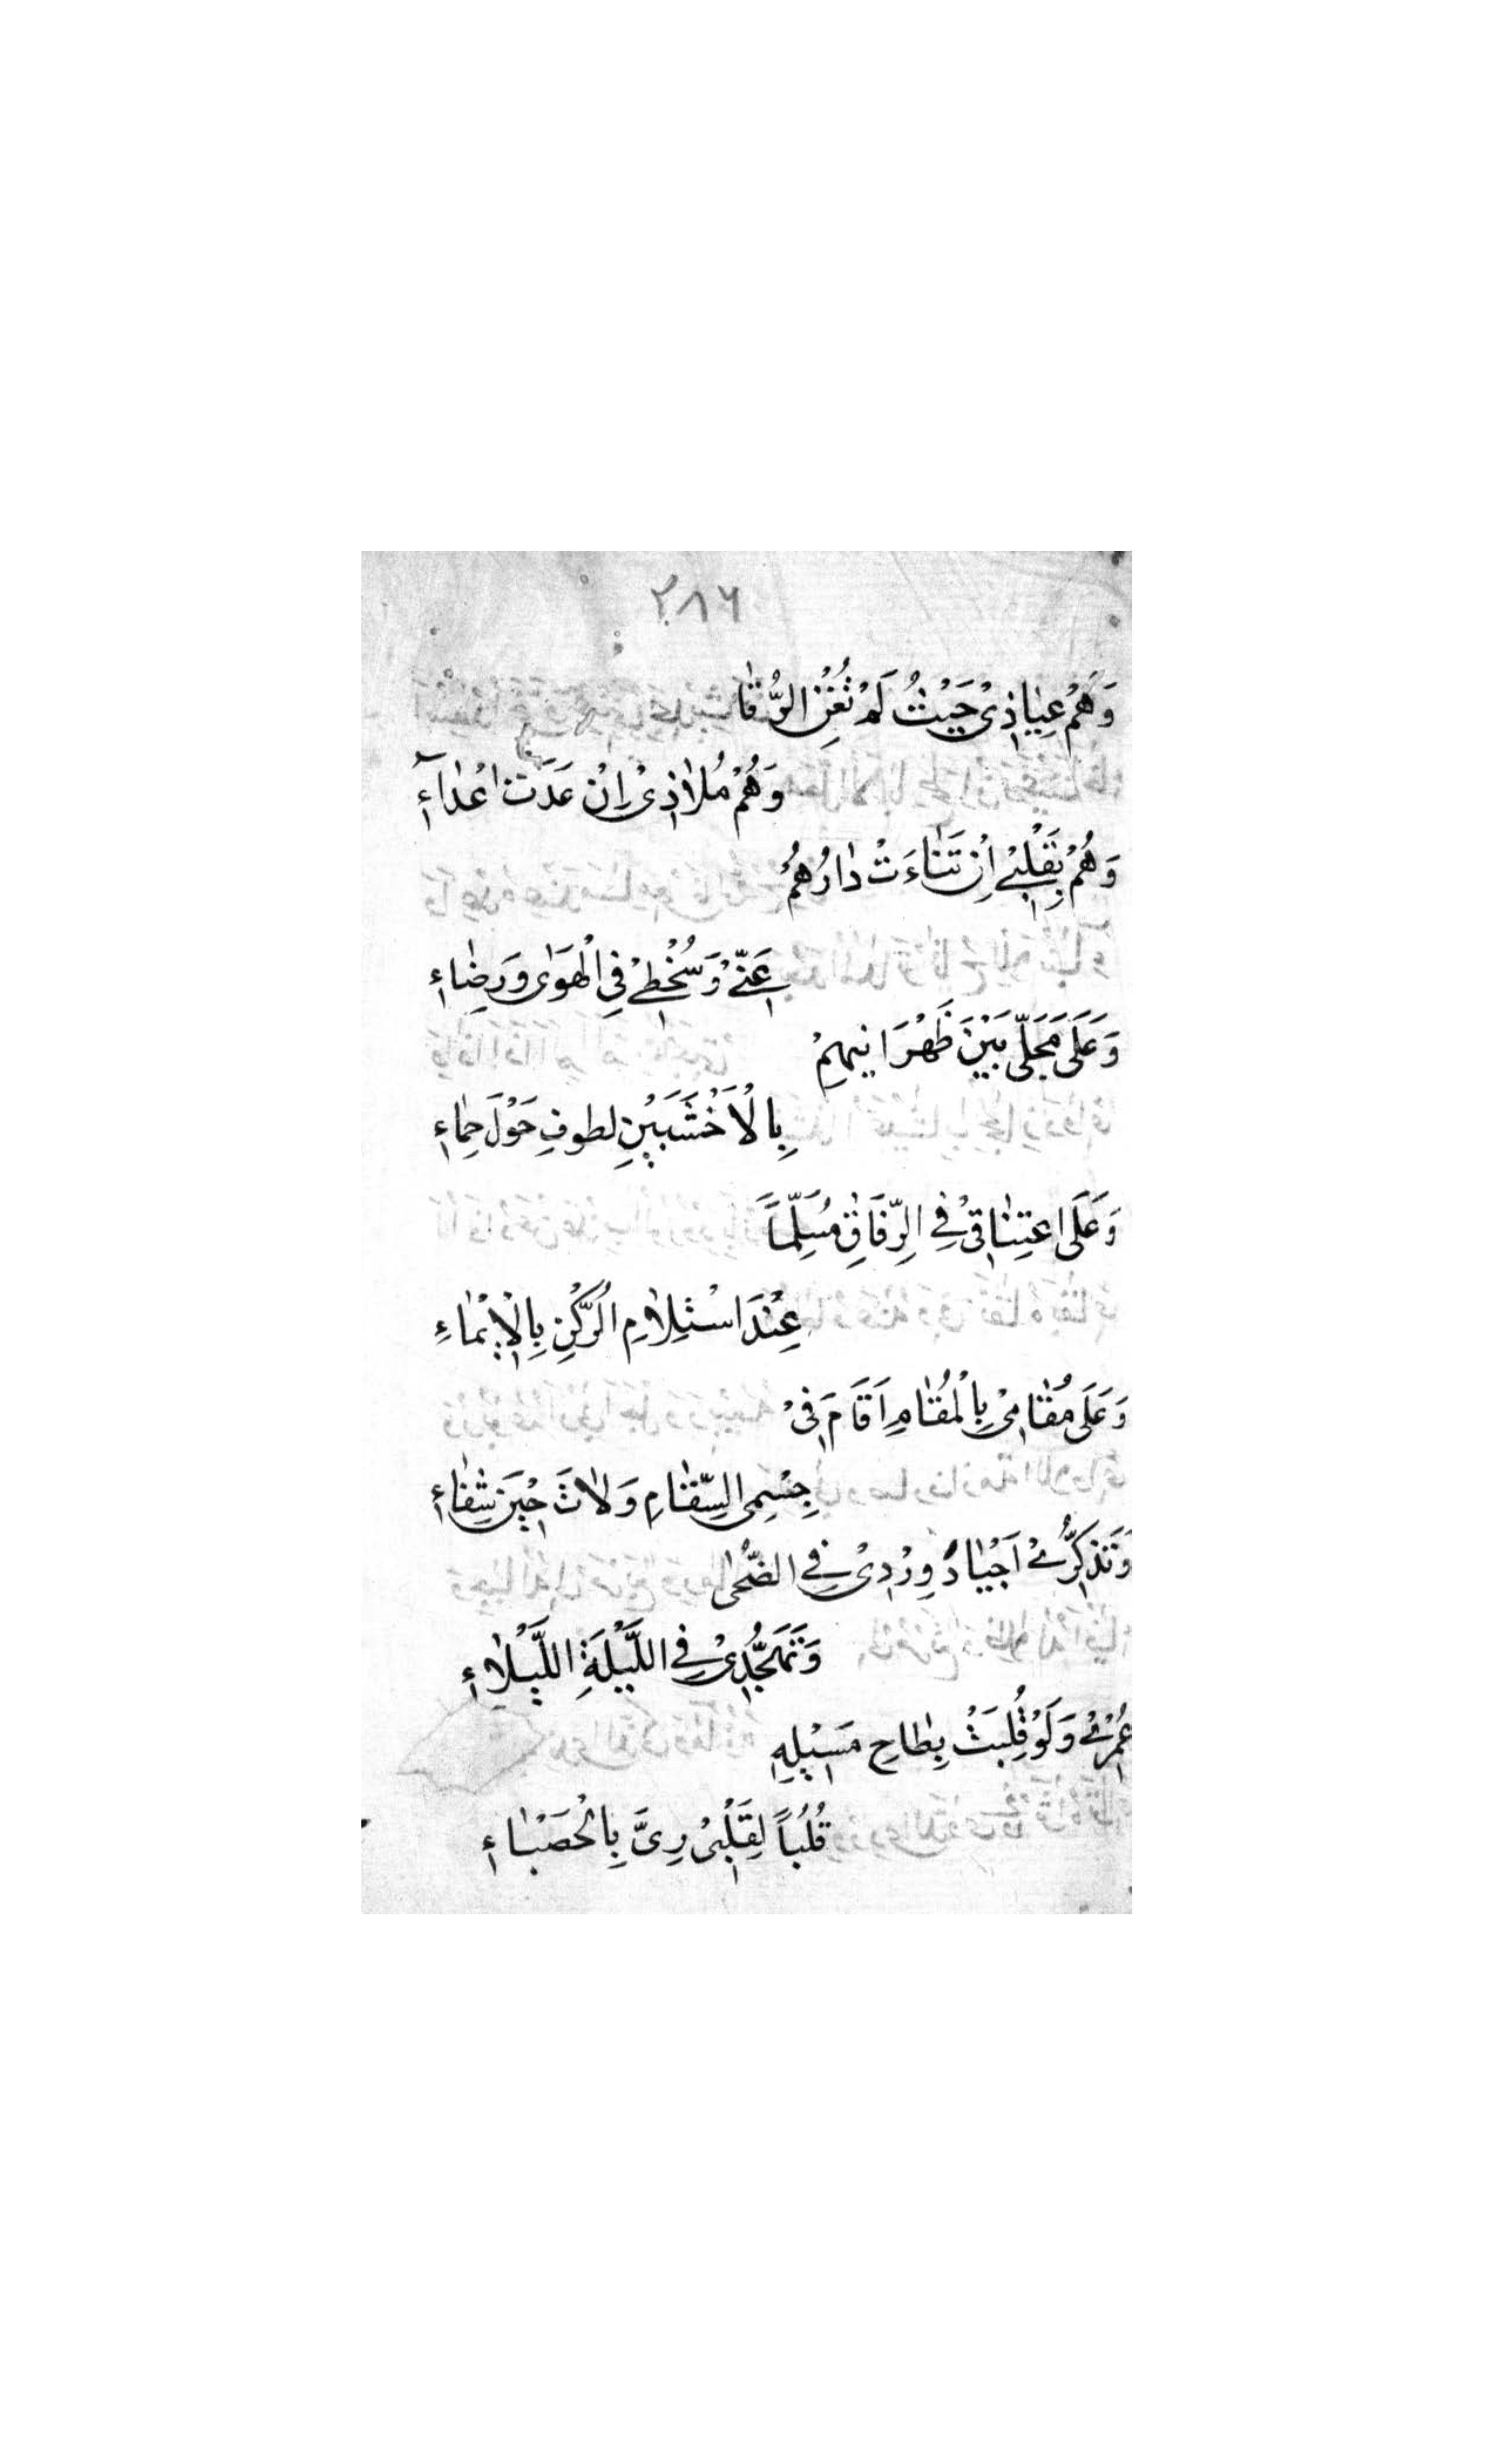 ٢٨٦
وَهُمْ عِیٰاذِیْ حَیْثُ لَمْ تُغْنِ الرُّقٰا
وَهُمْ مُلاٰذِیْ اِنْ عَدَتْ اعْدٰآءِ
وَهُمْ بِقَلْبِیْ اِنْ تَنٰاءَتْ دٰارُهُمْ
عَنّیْ وَسُخْطِیْ فِی الْهَوٰی وَرَضٰاءِ
وَعَلَی مَحَلّی بَیْنَ ظَهْرَانیهِمْ
بِالْاَخْشَبَیْنِ لطوفِ حَوْلَ حِمٰاءِ
وَعَلَی اعتِنٰاقیْ فِی الرِّفَاقِ مُسَلِّماً
عِنْدَ اسْتِلاٰمِ الرُّکْنِ بِالْایْمٰاءِ
وَعَلَی مُقٰامیْ بِالْمُقٰامِ اَقَامَ فیْ
جِسْمِی السِّقٰامِ وَلاٰتَ حِیْنَ شِفٰاءِ
وَتَذَکُّرِیْ اَجْیٰادُ وِرْدِیْ فِی الضُّحٰی
وَتَهَجُّدِیْ فِی اللَّیْلَةِ اللَّیْلاٰءِ
عُمْرِیْ وَلَوْ قُلِبَتْ بِطٰاحِ مَسَیْلِهِ
قُلُباً لِقَلْبِیْ رِیَّ بِالْحَصَبْاءِ